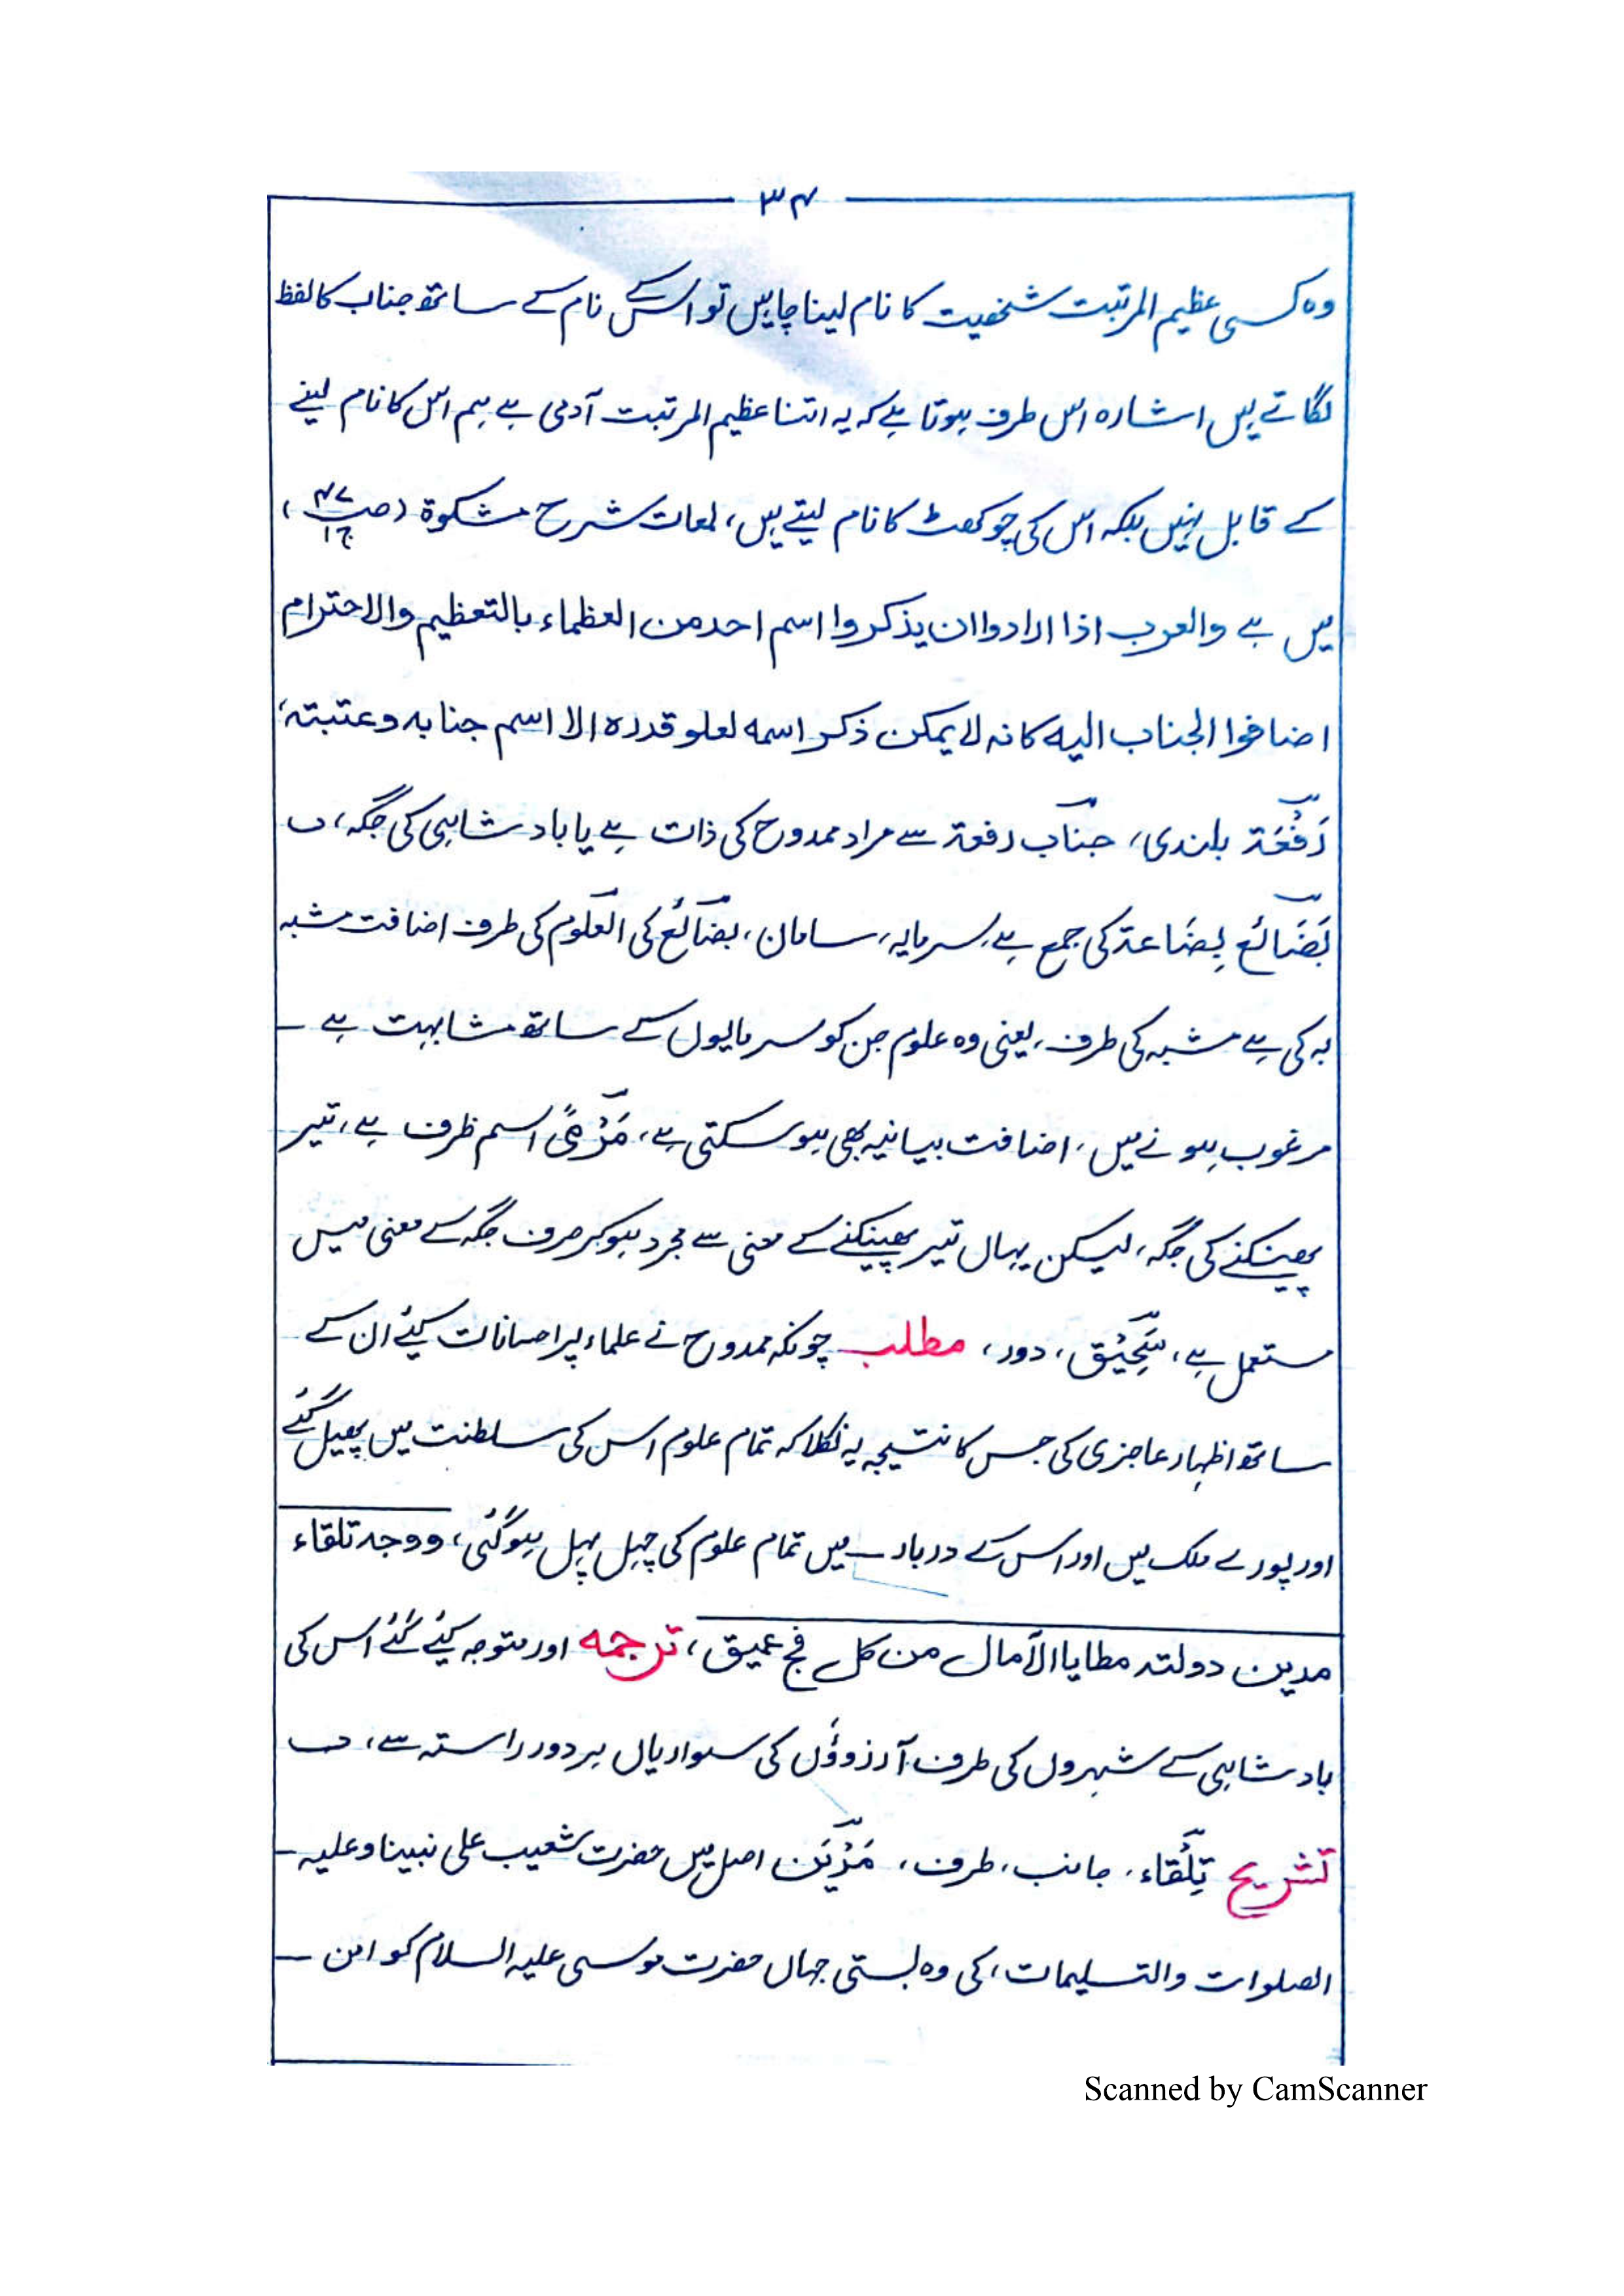 ۳۴
وہ کسی عظیم المرتبت شخصیت کا نام لینا چاہیں تو اس کے نام کے ساتھ جناب کا لفظ
لگاتے ہیں اشارہ اس طرف ہوتا ہے کہ یہ اتنا عظیم المرتبت آدمی ہے ہم اس کا نام لینے
کے قابل نہیں بلکہ اس کی چوکھٹ کا نام لیتے ہیں، لمعات شرح مشکوۃ (ص۴۷ ج۱)
میں ہے والعرب اذا ارادوا ان یذکروا اسم احد من العظماء بالتعظیم والاحترام
اضافوا الجناب الیہ کانہ لا یمکن ذکر اسمہ لعلو قدرہ الا اسم جنابہ وعتبتہ،
رَفْعَۃ بلندی، جناب رفعۃ سے مراد ممدوح کی ذات ہے یا بادشاہی کی جگہ،
بَضَائع بِضَاعۃ کی جمع ہے، سرمایہ، سامان، بضائع کی العلوم کی طرف اضافت مشبہ
بہ کی ہے مشبہ کی طرف، یعنی وہ علوم جن کو سرمایوں کے ساتھ مشابہت ہے ۔
مرغوب ہونے میں، اضافت بیانیہ بھی ہو سکتی ہے، مَرْمیً اسم ظرف ہے، تیر
پھینکنے کی جگہ، لیکن یہاں تیر پھینکنے کے معنی سے مجرد ہو کر صرف جگہ کے معنی میں
مستعمل ہے، سَحِیْق، دور، مطلب چونکہ ممدوح نے علماء پر احسانات کیئے ان کے
ساتھ اظہار عاجزی کی جس کا نتیجہ یہ نکلا کہ تمام علوم اس کی سلطنت میں پھیل گئے
اور پورے ملک میں اور اس کے دربار میں تمام علوم کی چہل پہل ہو گئی، ووجہ تلقاء
مدین دولتہ مطایا الآمال من کل فج عمیق، ترجمہ اور متوجہ کیئے گئے اس کی
بادشاہی کے شہروں کی طرف آرزوؤں کی سواریاں ہر دور راستہ سے،
تشریح تِلْقاء، جانب، طرف، مَدْیَن اصل میں حضرت شعیب علی نبینا وعلیہ
الصلوات والتسلیمات، کی وہ بستی جہاں حضرت موسی علیہ السلام کو امن
Scanned by CamScanner